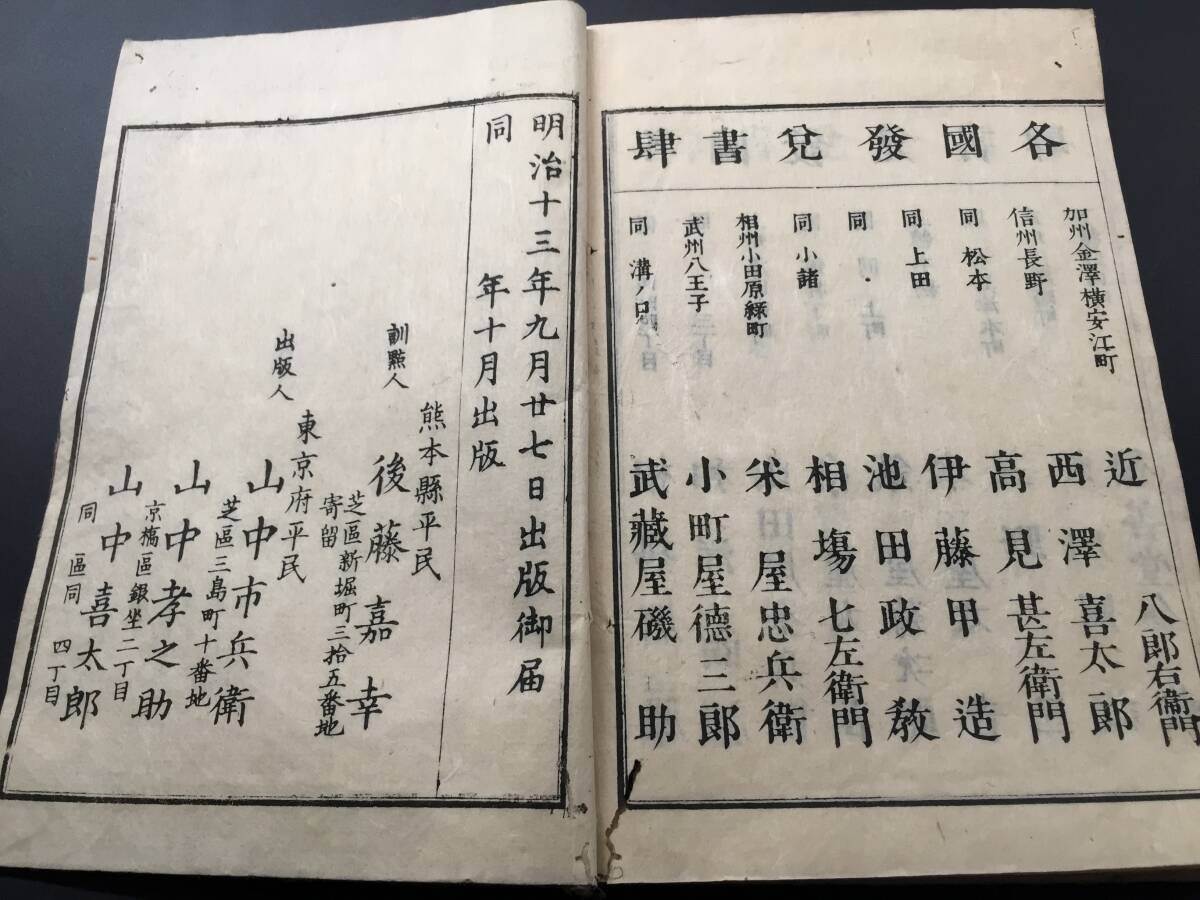 各國發兌書肆
加州金澤横安江町 近八郎右衞門
信州長野 西澤喜太郎
同松本 高見甚左衛門
同上田 伊藤甲造
同・上町 池田政敎
同小諸 相塲七左衛門
相州小田原緑町 米屋忠兵衛
武州八王子 小町屋德三郎
同溝ノ口 武藏屋磯助
明治十三年九月廿七日出版御届
同年十月出版
熊本縣平民
訓點人 後藤嘉幸
芝區新堀町三拾五番地
寄留
東京府平民
出版人 山中市兵衛
芝區三島町十番地
山中孝之助
京橋區銀坐二丁目
山中喜太郎
同區同四丁目